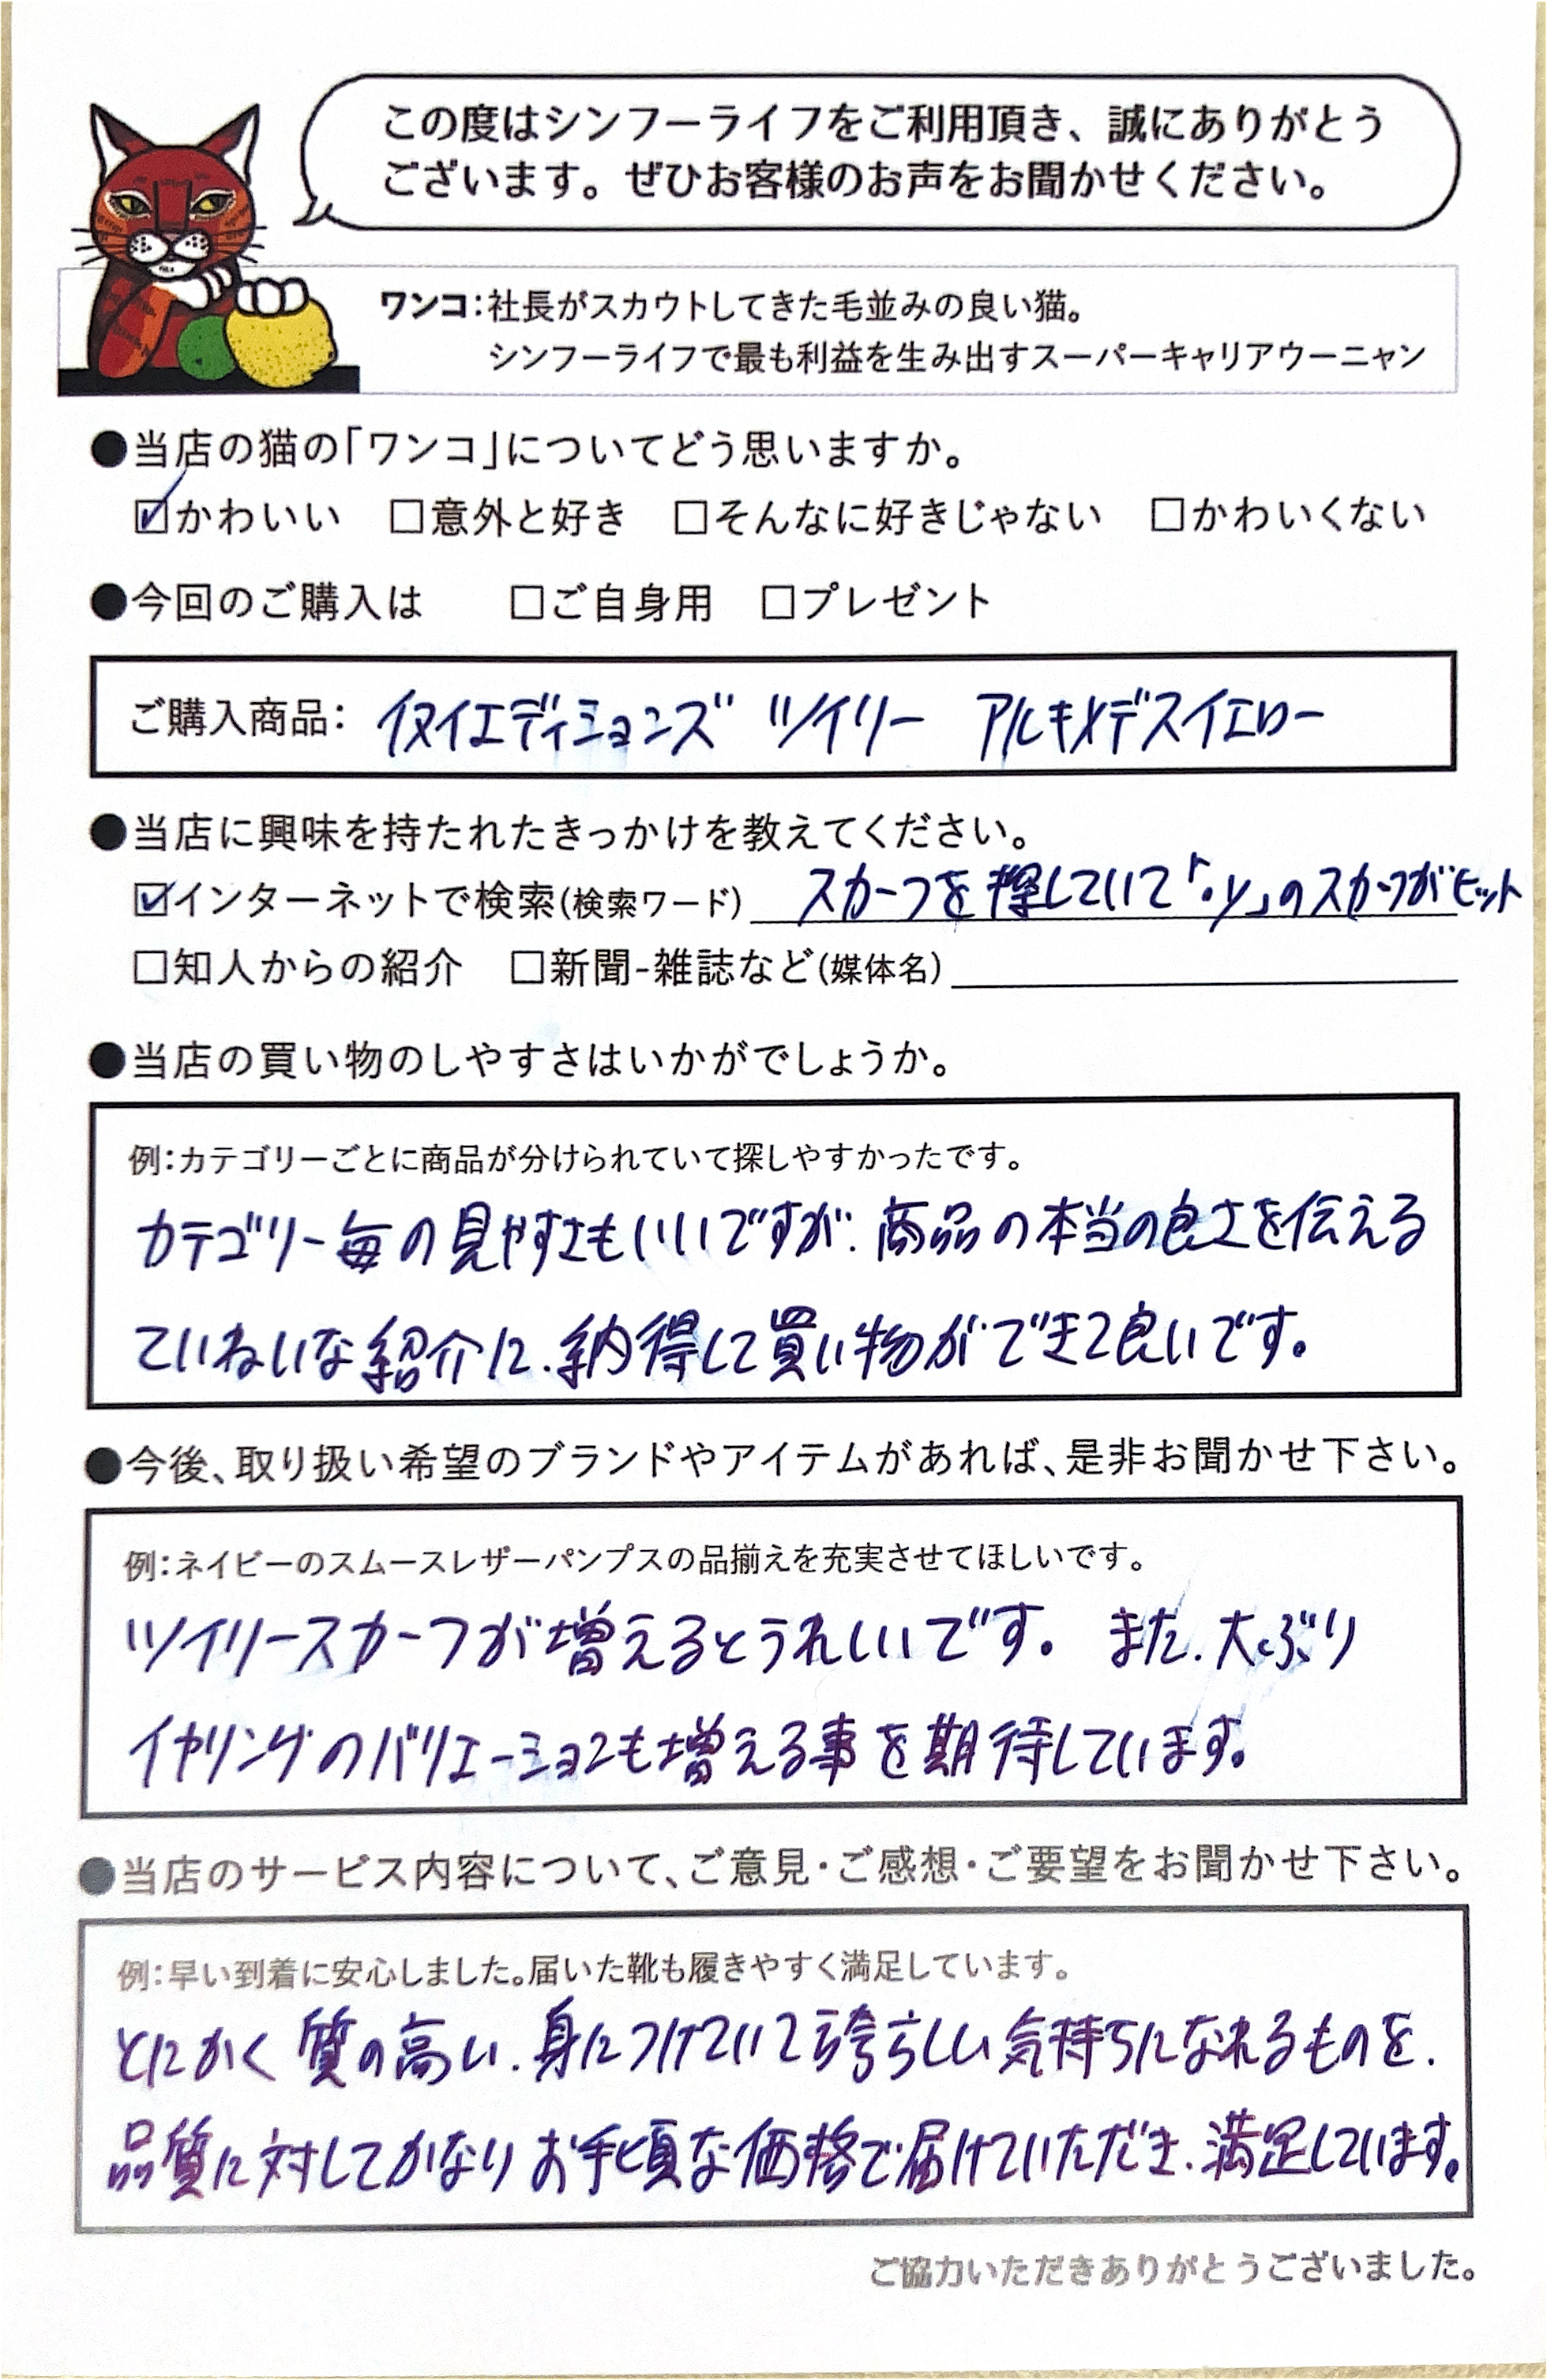 この度はシンフーライフをご利用頂き、誠にありがとう
ございます。ぜひお客様のお声をお聞かせください。
ワンコ：社長がスカウトしてきた毛並みの良い猫。
シンフーライフで最も利益を生み出すスーパーキャリアウーニャン
●当店の猫の「ワンコ」についてどう思いますか。
☑かわいい □意外と好き □そんなに好きじゃない □かわいくない
●今回のご購入は □ご自身用 □プレゼント
ご購入商品： イヌイエディションズ ツイリー アルキメデスイエロー
●当店に興味を持たれたきっかけを教えてください。
☑インターネットで検索(検索ワード) スカーフを探していて「.y」のスカーフがヒット
□知人からの紹介 □新聞-雑誌など(媒体名)
●当店の買い物のしやすさはいかがでしょうか。
例：カテゴリーごとに商品が分けられていて探しやすかったです。
カテゴリー毎の見やすさもいいですが、商品の本当の良さを伝える
ていねいな紹介に、納得して買い物ができて良いです。
●今後、取り扱い希望のブランドやアイテムがあれば、是非お聞かせ下さい。
例：ネイビーのスムースレザーパンプスの品揃えを充実させてほしいです。
ツイリースカーフが増えるとうれしいです。 また、大ぶり
イヤリングのバリエーションも増える事を期待しています。
●当店のサービス内容について、ご意見・ご感想・ご要望をお聞かせ下さい。
例：早い到着に安心しました。届いた靴も履きやすく満足しています。
とにかく質の高い、身につけていて誇らしい気持ちになれるものを、
品質に対してかなりお手頃な価格で届けていただき、満足しています。
ご協力いただきありがとうございました。